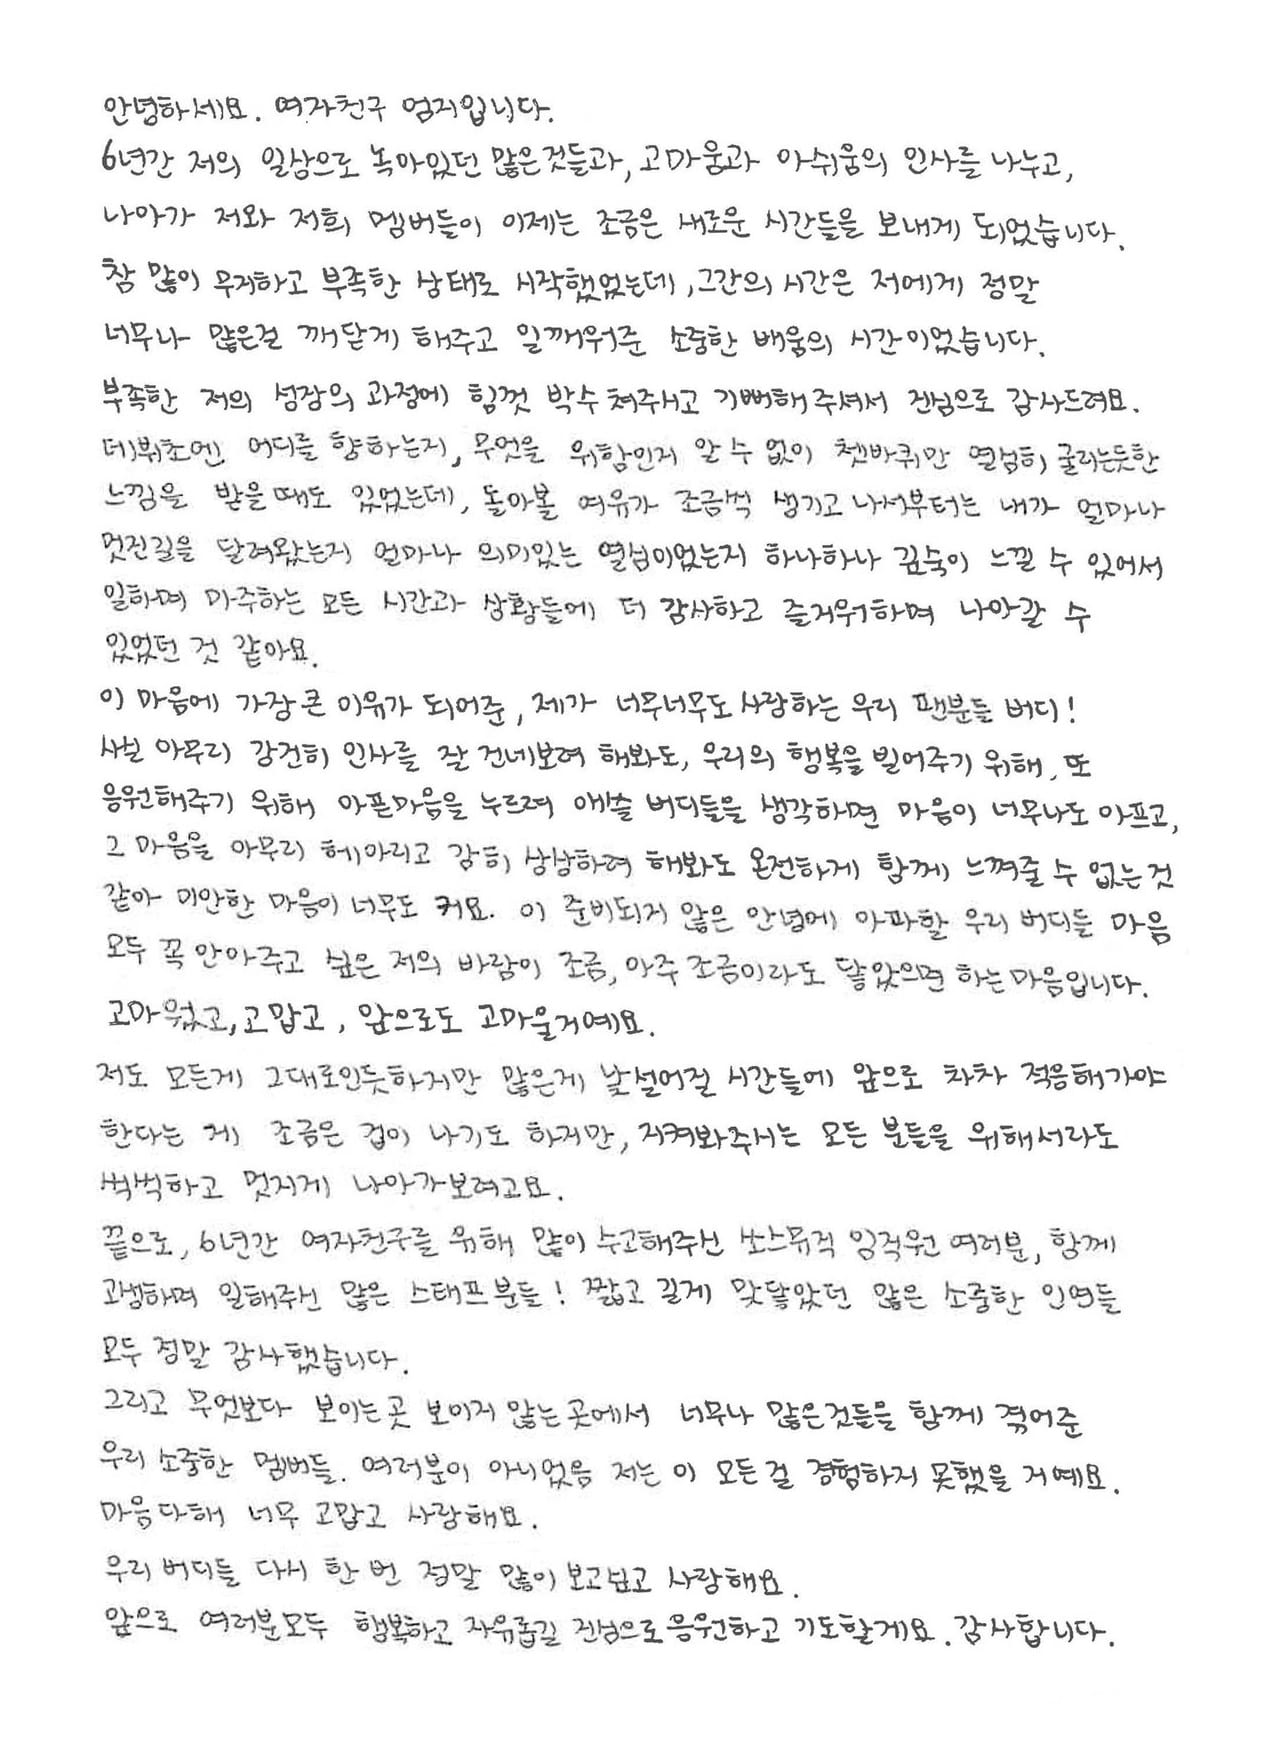 안녕하세요. 여자친구 엄지입니다.
6년간 저의 일상으로 녹아있던 많은것들과, 고마움과 아쉬움의 인사를 나누고,
나아가 저와 저희 멤버들이 이제는 조금은 새로운 시간들을 보내게 되었습니다.
참 많이 무지하고 부족한 상태로 시작했었는데, 그간의 시간은 저에게 정말
너무나 많은걸 깨닫게 해주고 일깨워준 소중한 배움의 시간이었습니다.
부족한 저의 성장의 과정에 힘껏 박수 쳐주시고 기뻐해 주셔서 진심으로 감사드려요.
데뷔초엔 어디를 향하는지, 무엇을 위함인지 알 수 없이 쳇바퀴만 열심히 굴리는듯한
느낌을 받을때도 있었는데, 돌아볼 여유가 조금씩 생기고 나서부터는 내가 얼마나
멋진길을 달려왔는지 얼마나 의미있는 열심이었는지 하나하나 깊숙이 느낄 수 있어서
일하며 마주하는 모든 시간과 상황들에 더 감사하고 즐거워하며 나아갈 수
있었던 것 같아요.
이 마음에 가장 큰 이유가 되어준, 제가 너무너무도 사랑하는 우리 팬분들 버디!
사실 아무리 강건히 인사를 잘 건네보려 해봐도, 우리의 행복을 빌어주기 위해, 또
응원해주기 위해 아픈마음을 누르려 애쓸 버디들을 생각하면 마음이 너무나도 아프고,
그 마음을 아무리 헤아리고 감히 상상하려 해봐도 온전하게 함께 느껴줄 수 없는것
같아 미안한 마음이 너무도 커요. 이 준비되지 않은 안녕에 아파할 우리 버디들 마음
모두 꼭 안아주고 싶은 저의 바람이 조금, 아주 조금이라도 닿았으면 하는마음입니다.
고마웠고, 고맙고, 앞으로도 고마울거예요.
저도 모든게 그대로인듯하지만 많은게 낯설어질 시간들에 앞으로 차차 적응해가야
한다는 게 조금은 겁이 나기도 하지만, 지켜봐주시는 모든 분들을 위해서라도
씩씩하고 멋지게 나아가보려고요.
끝으로, 6년간 여자친구를 위해 많이 수고해주신 쏘스뮤직 임직원 여러분, 함께
고생하며 일해주신 많은 스태프분들! 짧고 길게 맞닿았던 많은 소중한 인연들
모두 정말 감사했습니다.
그리고 무엇보다 보이는곳 보이지 않는곳에서 너무나 많은것들을 함께 겪어준
우리 소중한 멤버들. 여러분이 아니었음 저는 이 모든걸 경험하지 못했을 거예요.
마음다해 너무 고맙고 사랑해요.
우리 버디들 다시 한 번 정말 많이 보고싶고 사랑해요.
앞으로 여러분모두 행복하고 자유롭길 진심으로 응원하고 기도할게요. 감사합니다.